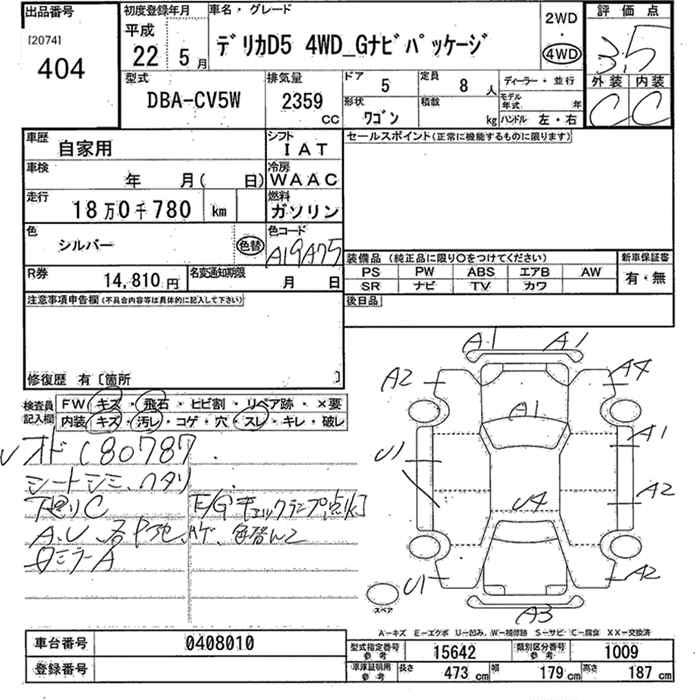 出品番号
[2074]
404
初度登録年月
平成
22年 5月
車名・グレード
デリカD5 4WD_Gナビパッケージ
2WD
・
4WD
評価点
3.5
外装 内装
C C
型式
DBA-CV5W
排気量
2359
CC
ドア
5
定員
8 人
形状
ワゴン
積載
kg
ディーラー・並行
モデル年式 年
ハンドル 左・右
車歴
自家用
シフト
IAT
車検
年 月( 日)
冷房
WAAC
走行
18万0千780 km
燃料
ガソリン
色
シルバー
色替
色コード
A19A75
R券
14,810円
名変通知期限
月 日
セールスポイント(正常に機能するものに限ります)
装備品 (純正品に限り○をつけてください)
PS PW ABS エアB AW
SR ナビ TV カワ
新車保証書
有・無
後日品
注意事項申告欄(不具合内容等は具体的に記入して下さい)
修復歴 有〔箇所 〕
検査員記入欄
FW キズ・飛石・ヒビ割・リペア跡・×要
内装 キズ・汚レ・コゲ・穴・スレ・キレ・破レ
180787
シートシミ、ヘタリ
下廻りC
E/Gチェックランプ点灯
A、U、
ミラーA
A1 A1
A2 A4
A1
U1 A1
U4 A2
U1 A2
A3
スペア
A-キズ E-エクボ U-凹み、W-補修跡 S-サビ C-腐食 XX-交換済
車台番号
0408010
登録番号
型式指定番号 参考
15642
類別区分番号 参考
1009
車庫証明用 参考
長さ 473 cm 幅 179 cm 高さ 187 cm